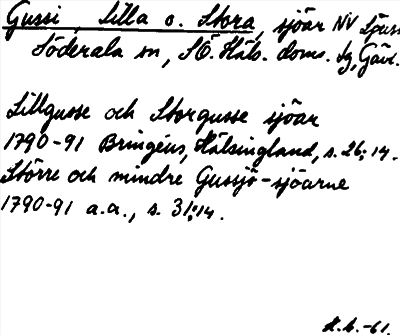 Gussi, Lilla o. Stora, sjöar NV
Söderala sn, SÖ. Häls. doms. sg, Gävl.
Lillgusse och Storgusse sjöar
1790-91 Bringéus, Hälsingland, s. 26:14.
Större och mindre Gussjö-sjöarne
1790-91 a.a., s. 31:14.
H.b.-61.